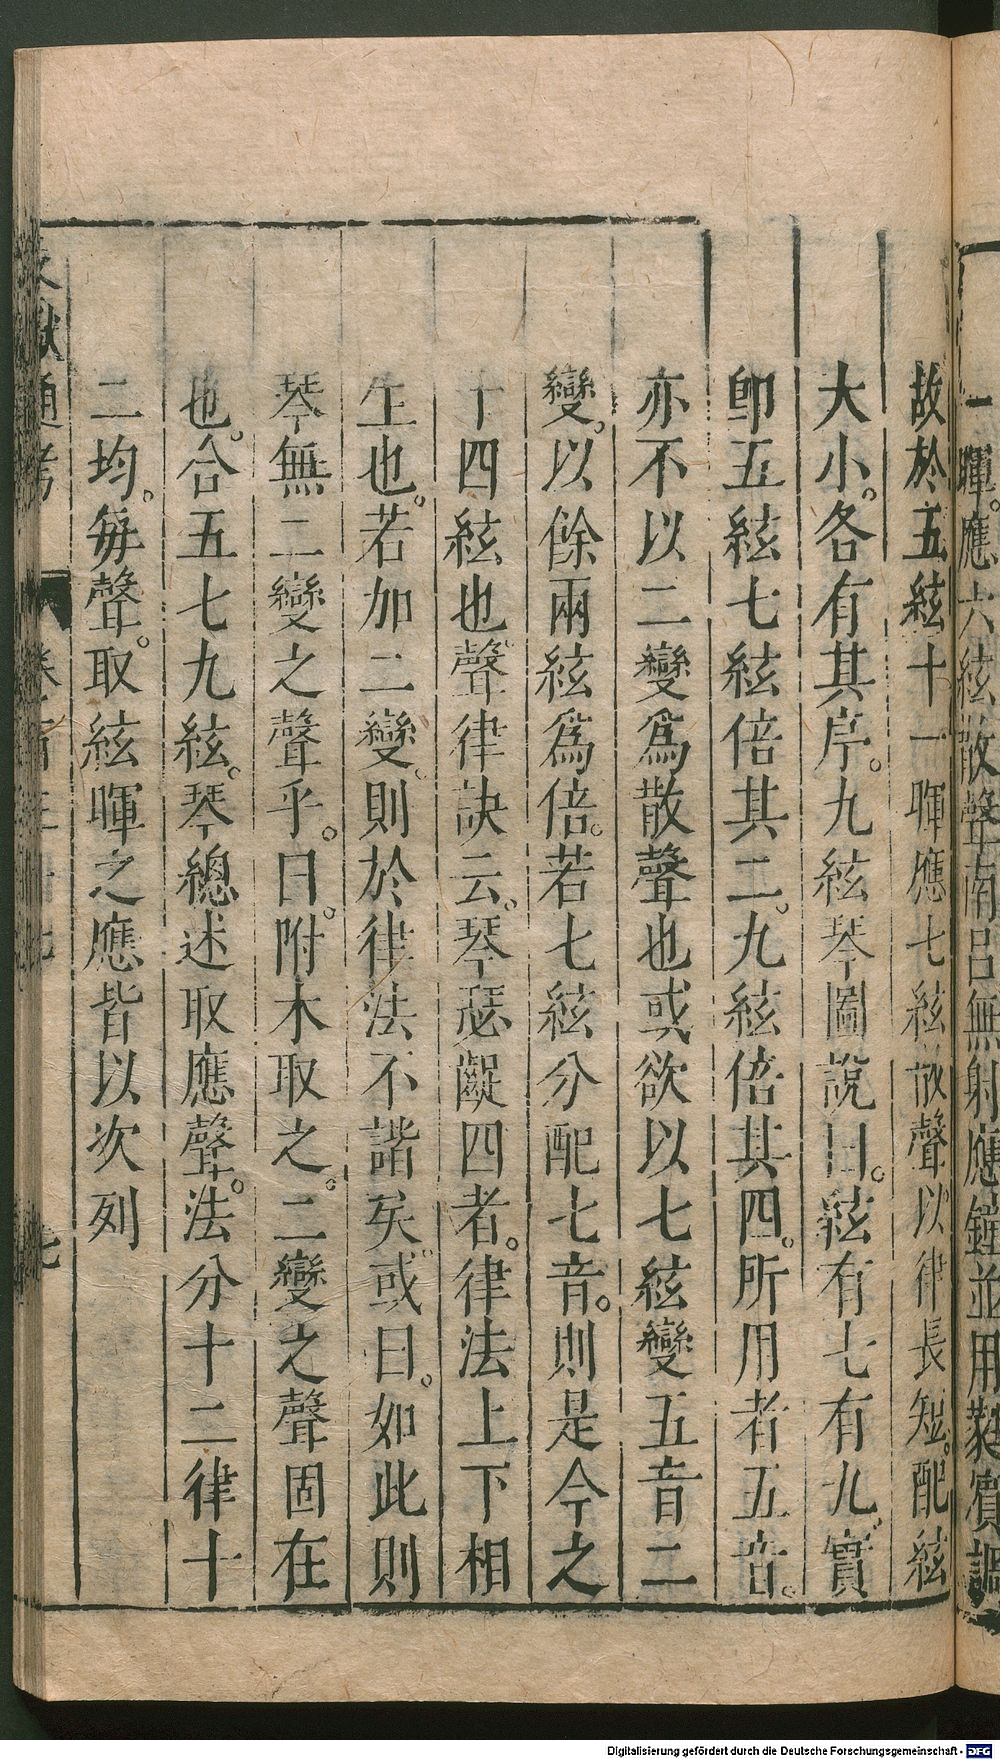 一暉。應六絃散聲南呂無射應鐘並用蕤賓調
故於五絃十一暉應七絃散聲以律長短。配絃
大小。各有其序。九絃琴圖說曰。絃有七有九。實
卽五絃七絃倍其二。九絃倍其四。所用者五音。
亦不以二變爲散聲也或欲以七絃變五音二
變。以餘兩絃爲倍。若七絃分配七音。則是今之
十四絃也。聲律訣云。琴瑟齪四者。律法上下相
生也。若加二變。則於律法不諧矣。或曰。如此則
琴無二變之聲乎。曰。附木取之。二變之聲固在
也。合五七九絃。琴總述取應聲。法分十二律十
二均。每聲。取絃暉之應皆以次列
文獻通考 七
Digitalisierung gefördert durch die Deutsche Forschungsgemeinschaft - DFG